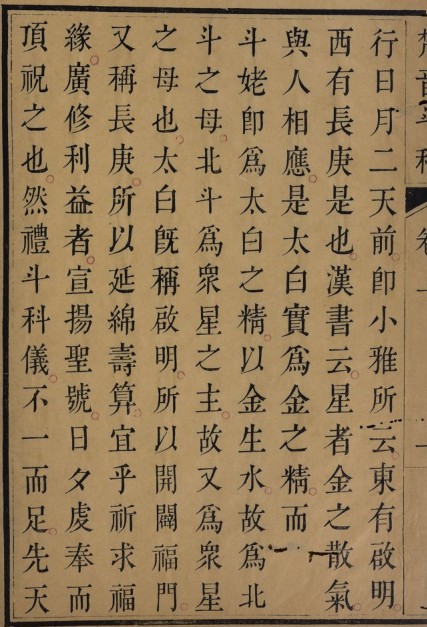 梵音斗科
卷上
行日月二天前即小雅所云東有啟明
西有長庚是也漢書云星者金之散氣
與人相應是太白實為金之精而
斗姥即為太白之精以金生水故為北
斗之母北斗為眾星之主故又為眾星
之母也太白既稱啟明所以開闢福門
又稱長庚所以延綿壽算宜乎祈求福
緣廣修利益者宣揚聖號日夕虔奉而
頂祝之也然禮斗科儀不一而足先天